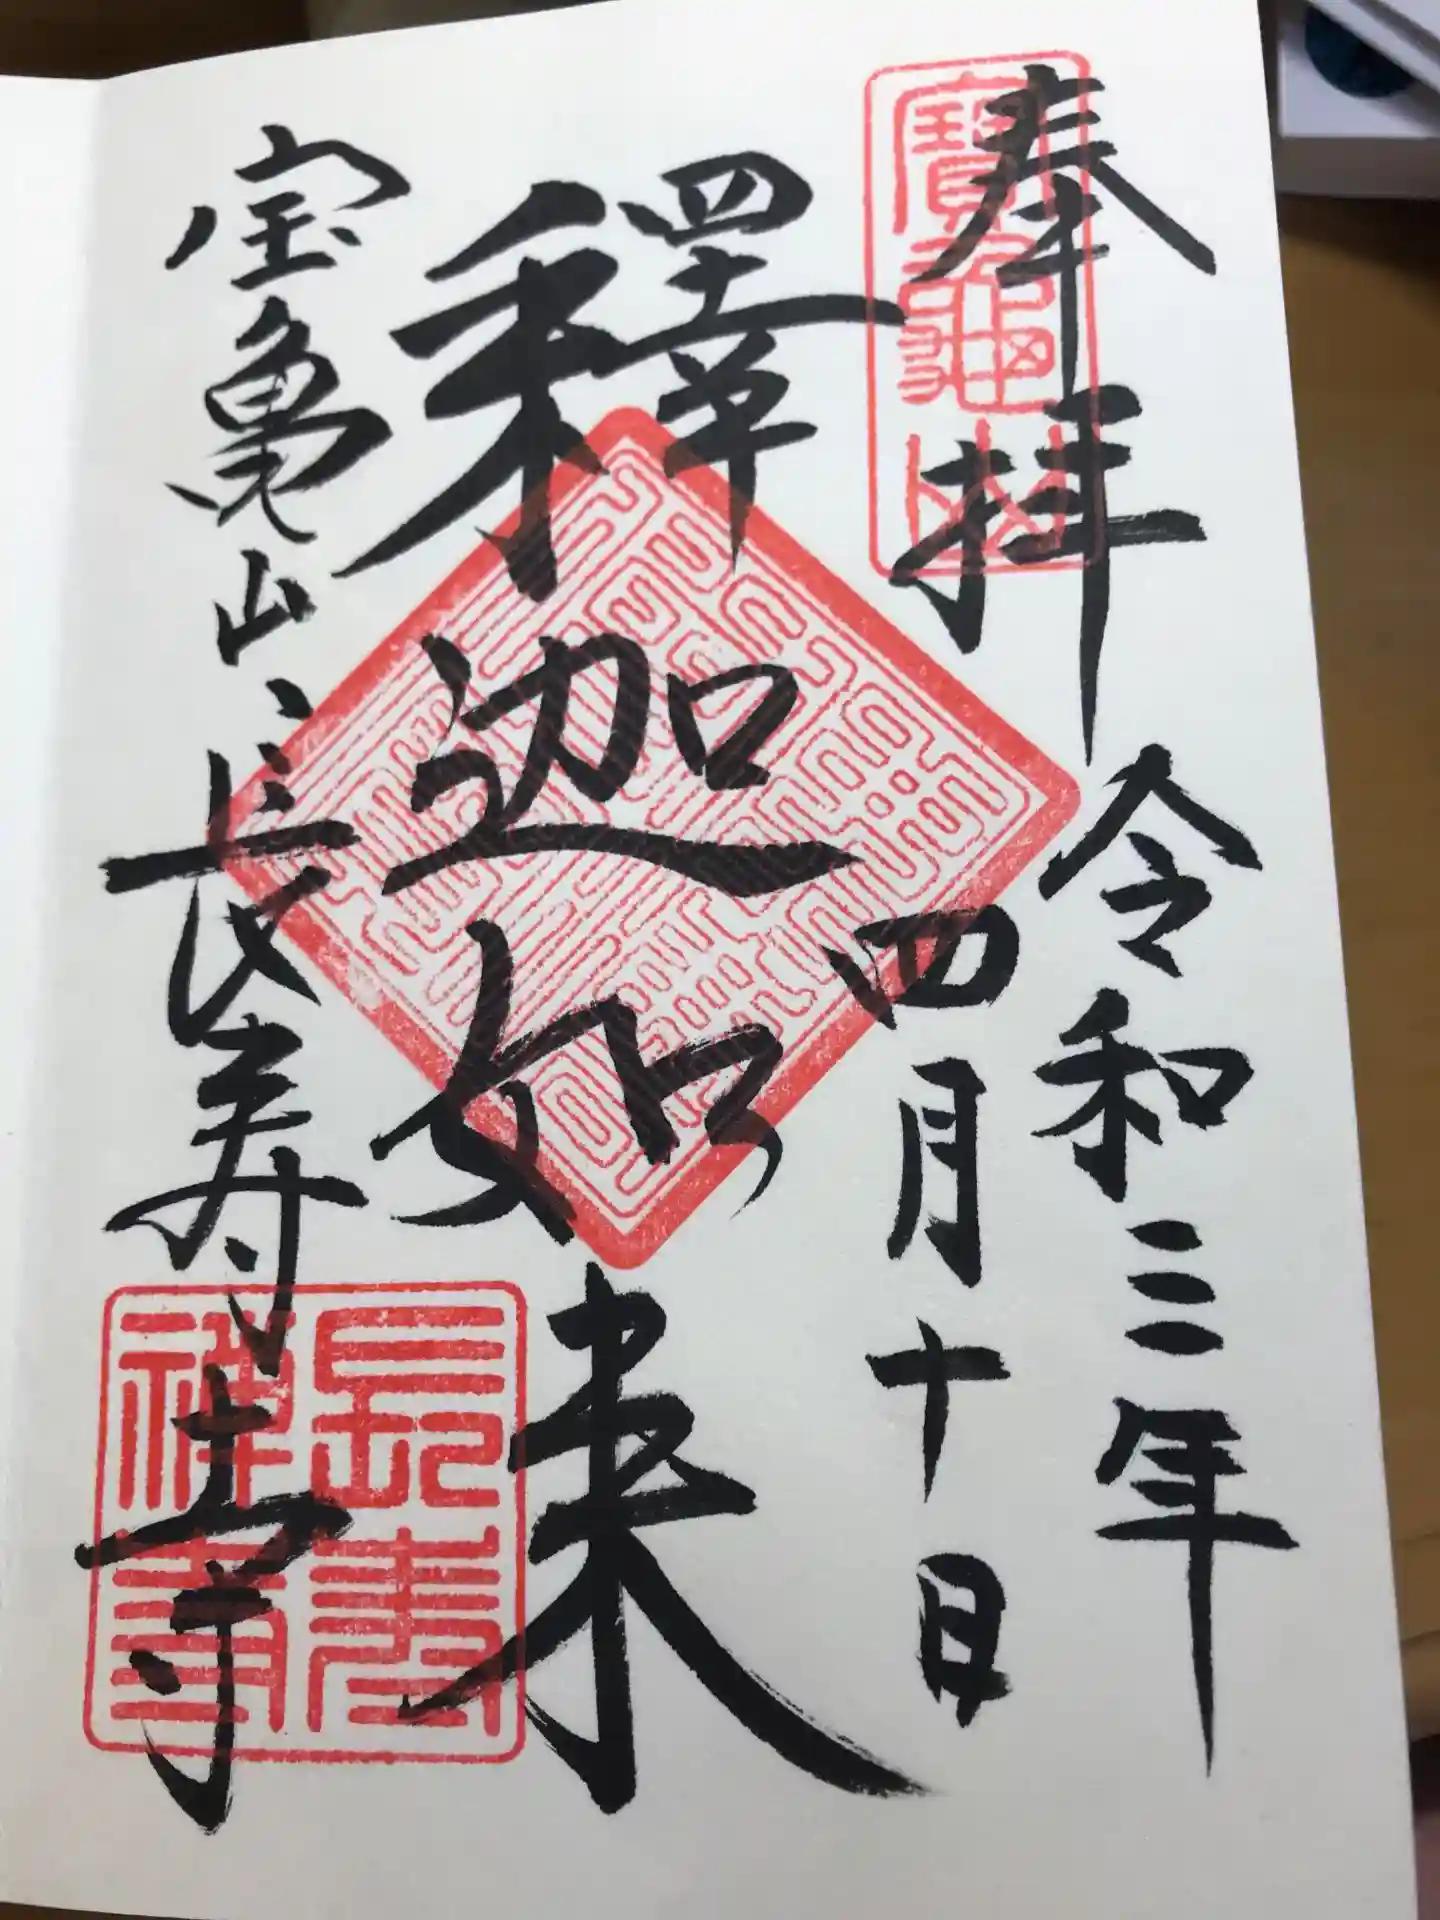 奉拝
令和三年
四月十日
釋迦如来
宝亀山
長寿寺
寶龜山
長壽禅寺